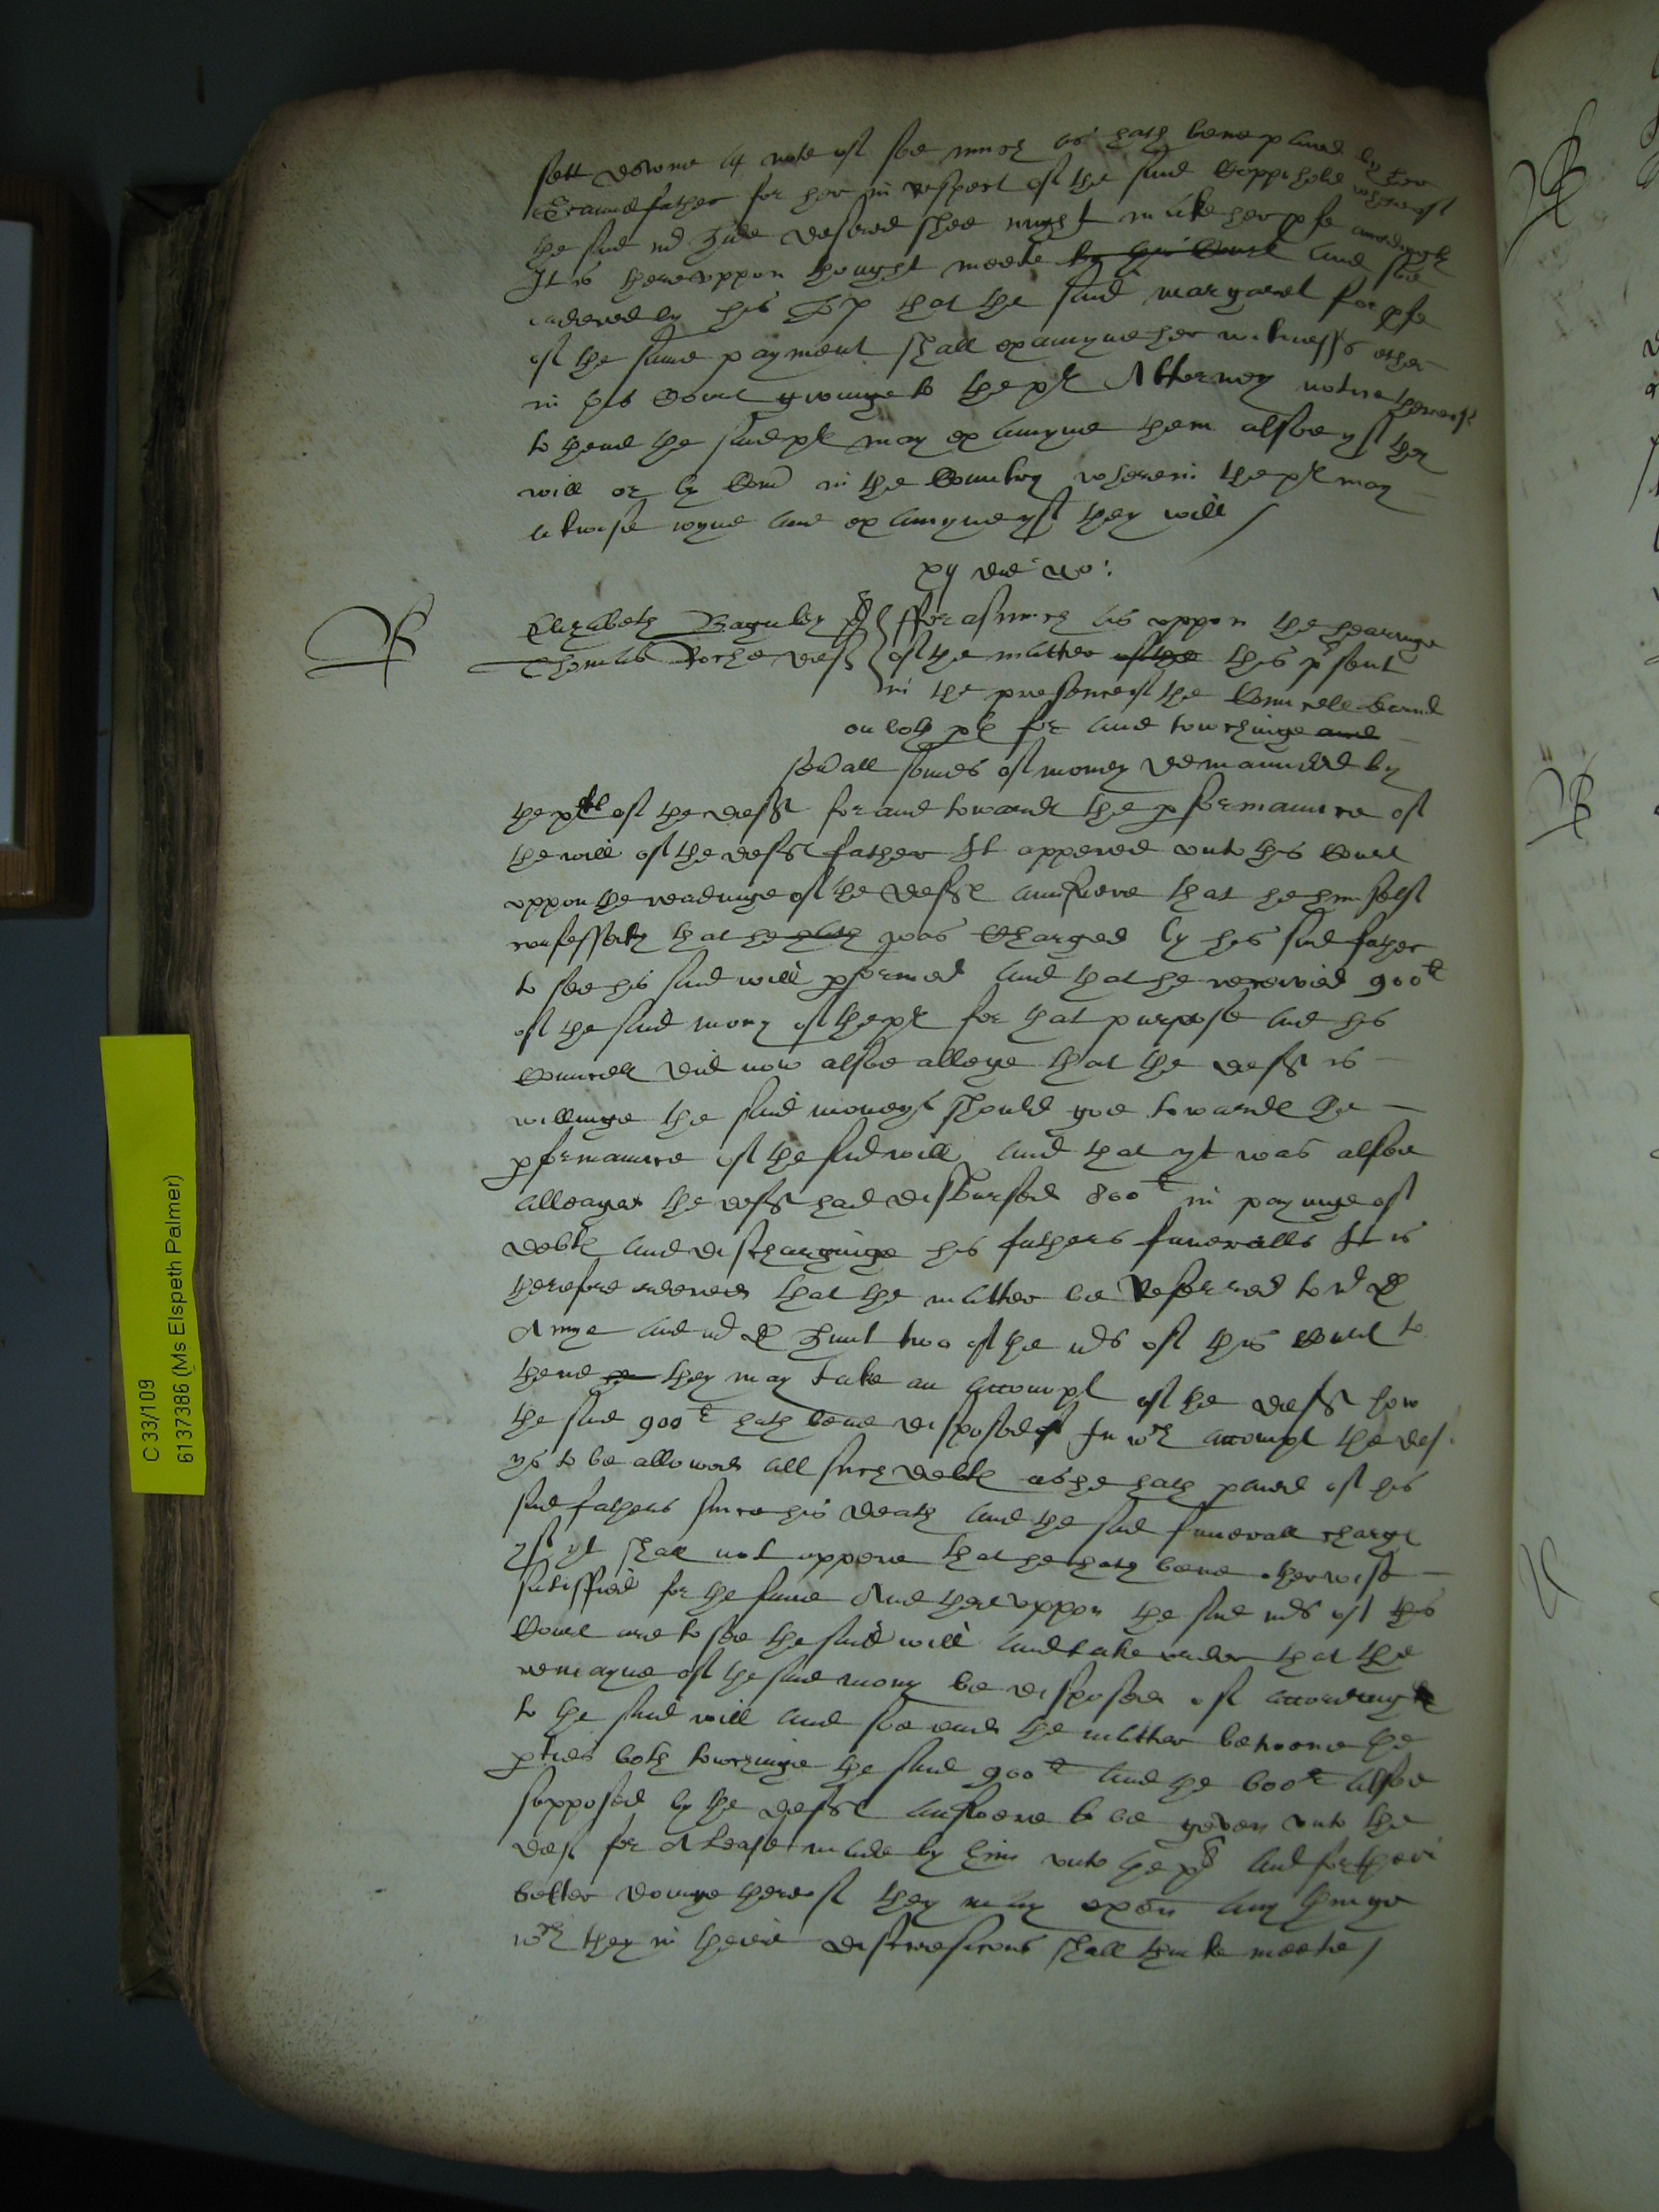 sett downe A note of soe much as hath bene paied by her
Graundfather for her in respect of the said Coppihold whereof
the said mr Hide desired shee might make her pfe accordingly
It is therevppon thought meete by this Court and soe
ordered by his Lp that the said margaret for pfe
of the same payment shall examyne her witnesses ether
in this Court giveinge to the pl Attorney notice thereof
to thend the said pl may examyne them alsoe yf they
will or by Com in the Countrey wherein the pl may
likewise ioyne and examyne yf they will /
xij die No:
Elizabeth Baguley pl } fforasmuch as vppon the hearinge
Thomas Roche deft } of the matter of the this pnsent
in the presence of the Councell learned
on both pts for and touchinge and
seuall somes of money demaunded by
the pl of the deft for and towards the pformaunce of
the will of the defts father It appered vnto this Court
vppon the readinge of the defts aunswere that he himself
confesseth that he hath was Charged by his said father
to see his said will pformed and that he received 900li
of the said mony of the pl for that purpose and his
Councell did now alsoe alleage that the deft is
willinge the said moneys should goe towards the
pformaunce of the said will And that yt was alsoe
alleaged the deft had disbursed 800li in payinge of
debts and discharginge his fathers funeralls It is
therefore ordered that the matter be Referred to mr D
Amye and mr D Hunt two of the mrs of this Court to
thend he they may take an accompt of the deft how
the said 900li hath bene disposed of In wch accompt the def
ys to be allowed all such debts as he hath paied of his
said fathers since his death and the said funerall charge
yf yt shall not appere that he hath bene otherwise
satisffied for the same And therevppon the said mrs of this
Court are to see the said will and take order that the
remayne of the said mony be disposed of accordinge
to the said will and soe end the matter betweene the
pties both touchinge the said 900li and the 600li alsoe
supposed by the defts answere to be geven vnto the
def for A Lease made by him vnto the pl And for their
better doinge thereof they may exon any thinge
wch they in theire discrescons shall thinke meete /
C 33/109
6137386 (Ms Elspeth Palmer)